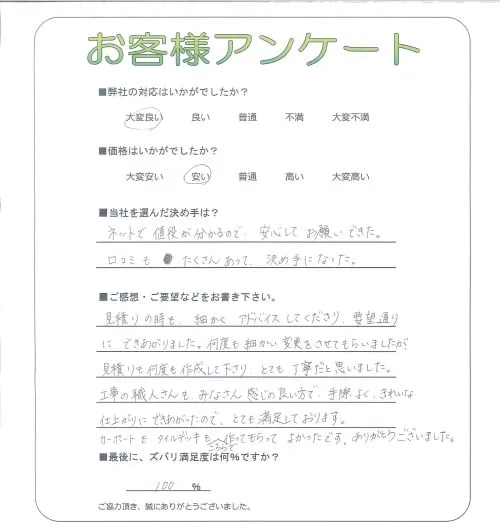 お客様アンケート
■弊社の対応はいかがでしたか?
大変良い 良い 普通 不満 大変不満
■価格はいかがでしたか?
大変安い 安い 普通 高い 大変高い
■当社を選んだ決め手は?
ネットで 値段が分かるので、安心して お願いできた。
口コミも たくさんあって、決め手になった。
■ご感想・ご要望などをお書き下さい。
見積りの時も、細かく アドバイスしてくださり、要望通り
に できあがりました。何度も細かい変更をさせてもらいましたが、
見積りも何度も作成して下さり、とても 丁寧だと思いました。
工事の職人さんも、みなさん 感じの良い方で、手際よく、きれいな
仕上がりにできあがったので、とても満足しております。
カーポートも、タイルデッキも、こちらで作ってもらって よかったです。ありがとうございました。
■最後に、ズバリ満足度は何%ですか?
100 %
ご協力頂き、誠にありがとうございました。